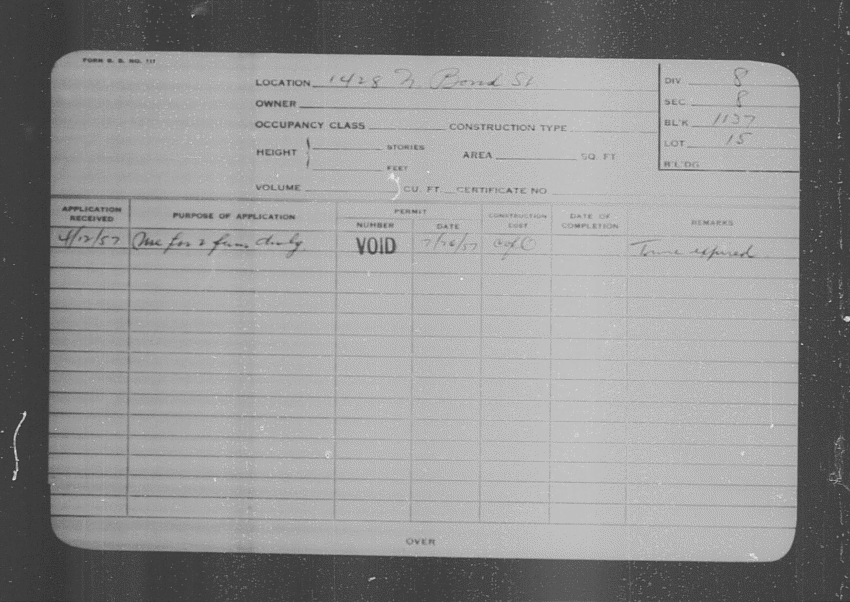 FORM B. B. NO. 717
LOCATION 1428 N. Bond St.
OWNER
OCCUPANCY CLASS CONSTRUCTION TYPE
HEIGHT STORIES
FEET
AREA SQ. FT
VOLUME CU. FT. CERTIFICATE NO
DIV. 8
SEC. 8
BL'K 1137
LOT 15
B'L'DG
APPLICATION RECEIVED PURPOSE OF APPLICATION PERMIT NUMBER DATE CONSTRUCTION COST DATE OF COMPLETION REMARKS
4/12/57 Use for 2 fam dwlg VOID 7/26/57 C of O Time expired
OVER